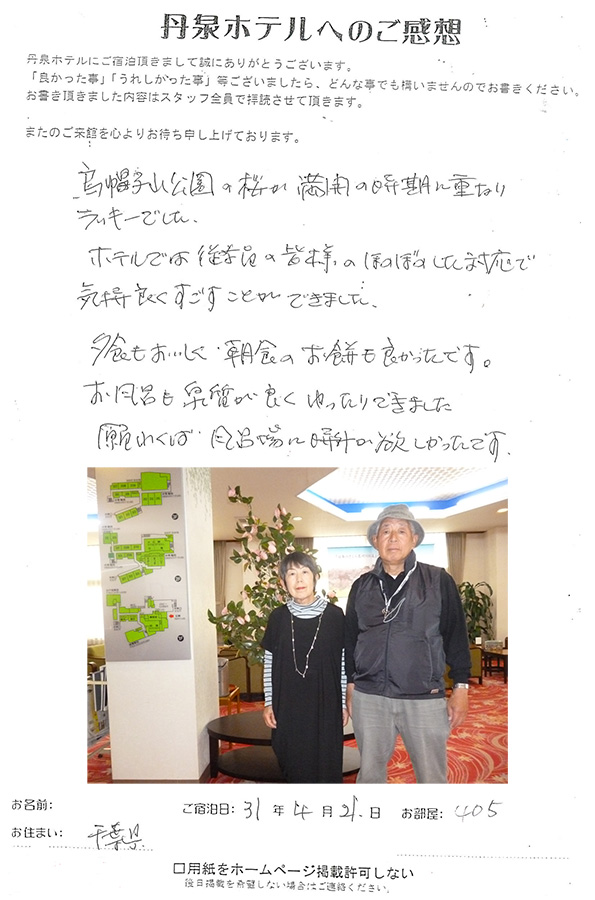 丹泉ホテルへのご感想
丹泉ホテルにご宿泊頂きまして誠にありがとうございます。
「良かった事」「うれしかった事」等ございましたら、どんな事でも構いませんのでお書きください。
お書き頂きました内容はスタッフ全員で拝読させて頂きます。
またのご来館を心よりお待ち申し上げております。
烏帽子山公園の桜が満開の時期に重なり
ラッキーでした、
ホテルでは従業員の皆様のほのぼのした対応で
気持良くすごすことができました、
夕食もおいしく朝食のお餅も良かったです。
お風呂も泉質が良くゆったりできました
願わくば風呂場に時計が欲しかったです.
お名前:
ご宿泊日: 31 年 4 月 21. 日 お部屋: 405
お住まい: 千葉県
口用紙をホームページ掲載許可しない
後日掲載を希望しない場合はご連絡ください。